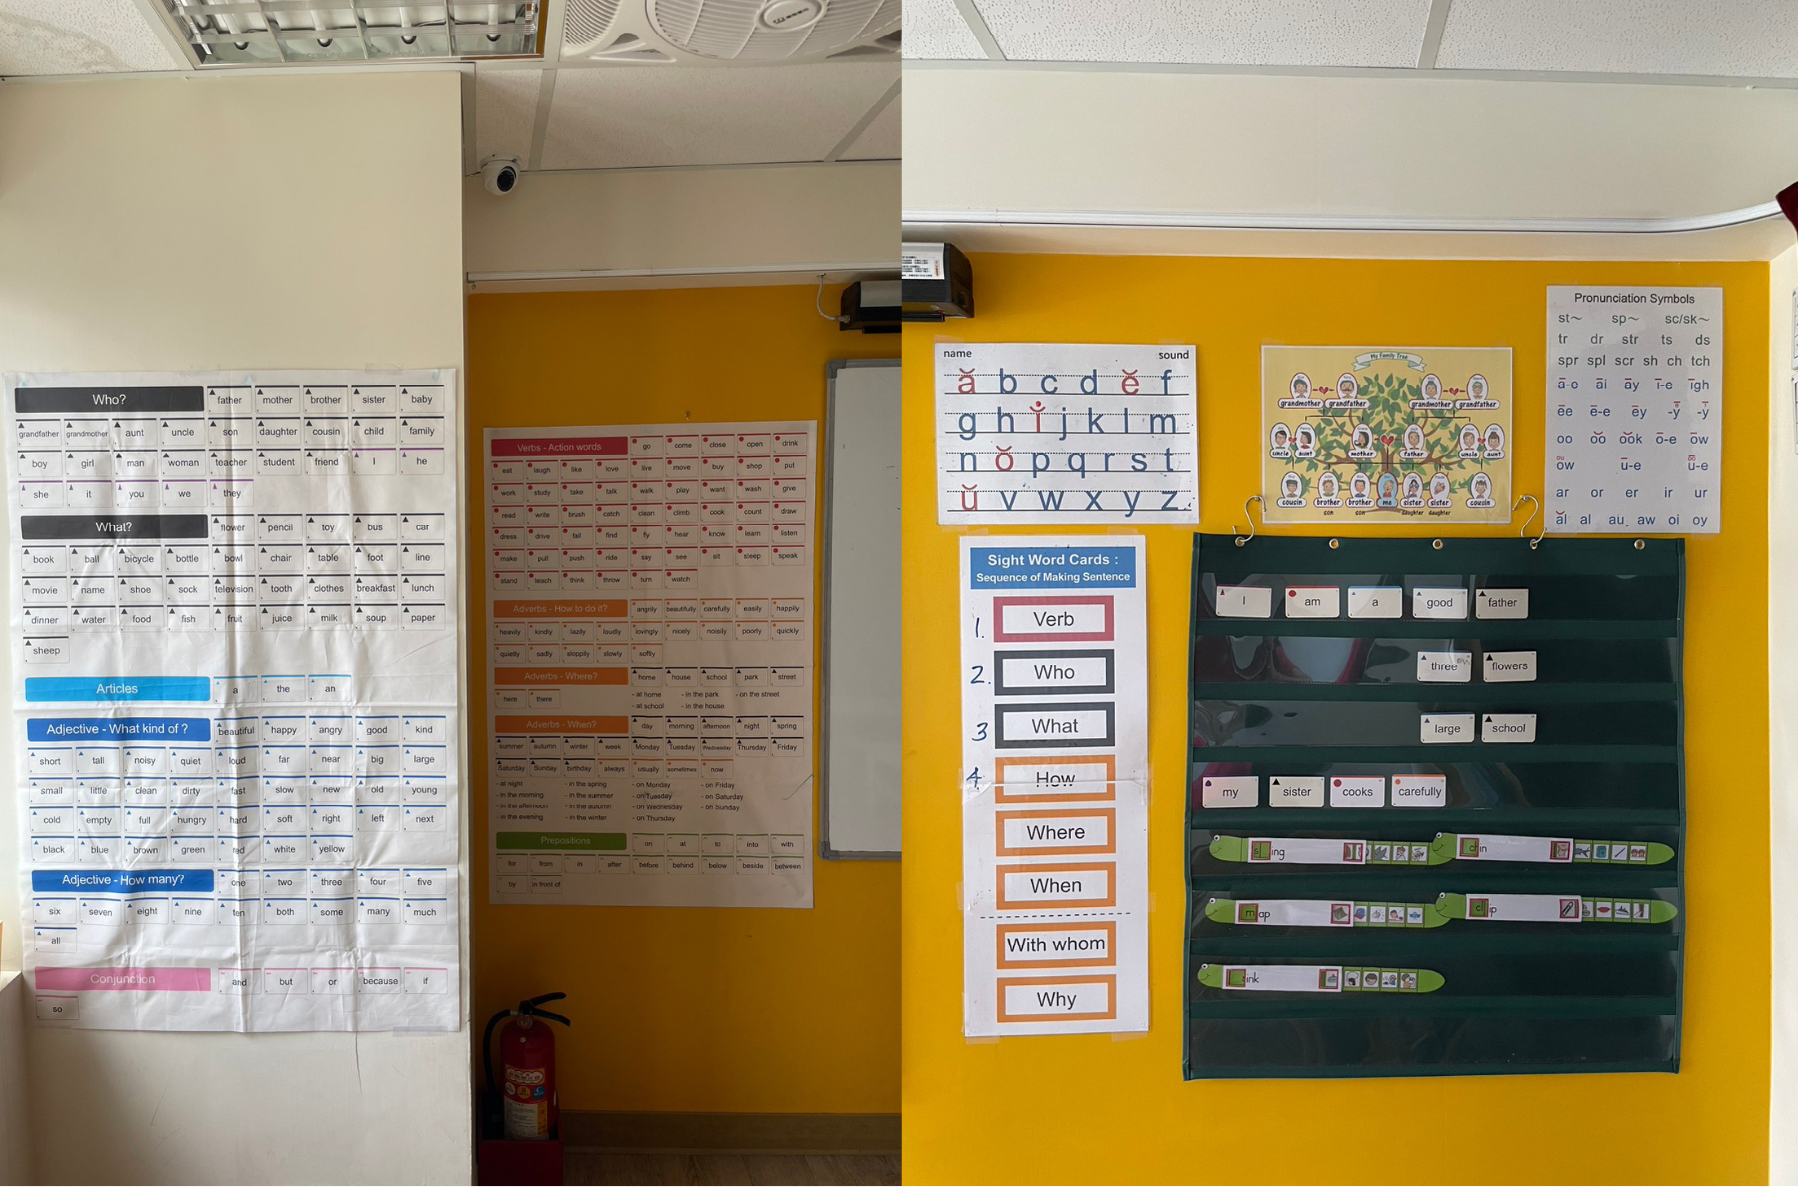 Who? father mother brother sister baby
grandfather grandmother aunt uncle son daughter cousin child family
boy girl man woman teacher student friend I he
she it you we they
What? flower pencil toy bus car
book ball bicycle bottle bowl chair table foot line
movie name shoe sock television tooth clothes breakfast lunch
dinner water food fish fruit juice milk soup paper
sheep
Articles a the an
Adjective - What kind of ? beautiful happy angry good kind
short tall noisy quiet loud far near big large
small little clean dirty fast slow new old young
cold empty full hungry hard soft right left next
black blue brown green red white yellow
Adjective - How many? one two three four five
six seven eight nine ten both some many much
all
Conjunction and but or because if
so
Verbs - Action words go come close open drink
eat laugh like love live move buy shop put
work study take talk walk play want wash give
read write brush catch clean climb cook count draw
dress drive fall find fly hear know learn listen
make pull push ride say see sit sleep speak
stand teach think throw turn watch
Adverbs - How to do it? angrily beautifully carefully easily happily
heavily kindly lazily loudly lovingly nicely noisily poorly quickly
quietly sadly sloppily slowly softly
Adverbs - Where? home house school park street
here there - at home - in the park - on the street
- at school - in the house
Adverbs - When? day morning afternoon night spring
summer autumn winter week Monday Tuesday Wednesday Thursday Friday
Saturday Sunday birthday always usually sometimes now
- at night - in the spring - on Monday - on Friday
- in the morning - in the summer - on Tuesday - on Saturday
- in the afternoon - in the autumn - on Wednesday - on Sunday
- in the evening - in the winter - on Thursday
Prepositions on at to into with
for from in after before behind below beside between
by in front of
name sound
ă b c d ĕ f
g h i j k l m
n ŏ p q r s t
ŭ v w x y z
My Family Tree
grandmother grandfather grandmother grandfather
uncle aunt mother father uncle aunt
cousin brother brother me sister sister cousin
son son daughter daughter
Pronunciation Symbols
st~ sp~ sc/sk~
tr dr str ts ds
spr spl scr sh ch tch
ā-e āi āy ī-e īgh
ēe ē-e ēy -y -y
oo ŏo ŏok ō-e ōw
ow u-e u-e
ar or er ir ur
al al au aw oi oy
Sight Word Cards :
Sequence of Making Sentence
1. Verb
2. Who
3 What
4. How
Where
When
With whom
Why
I am a good father
three flowers
large school
my sister cooks carefully
ing in
map clip
ink